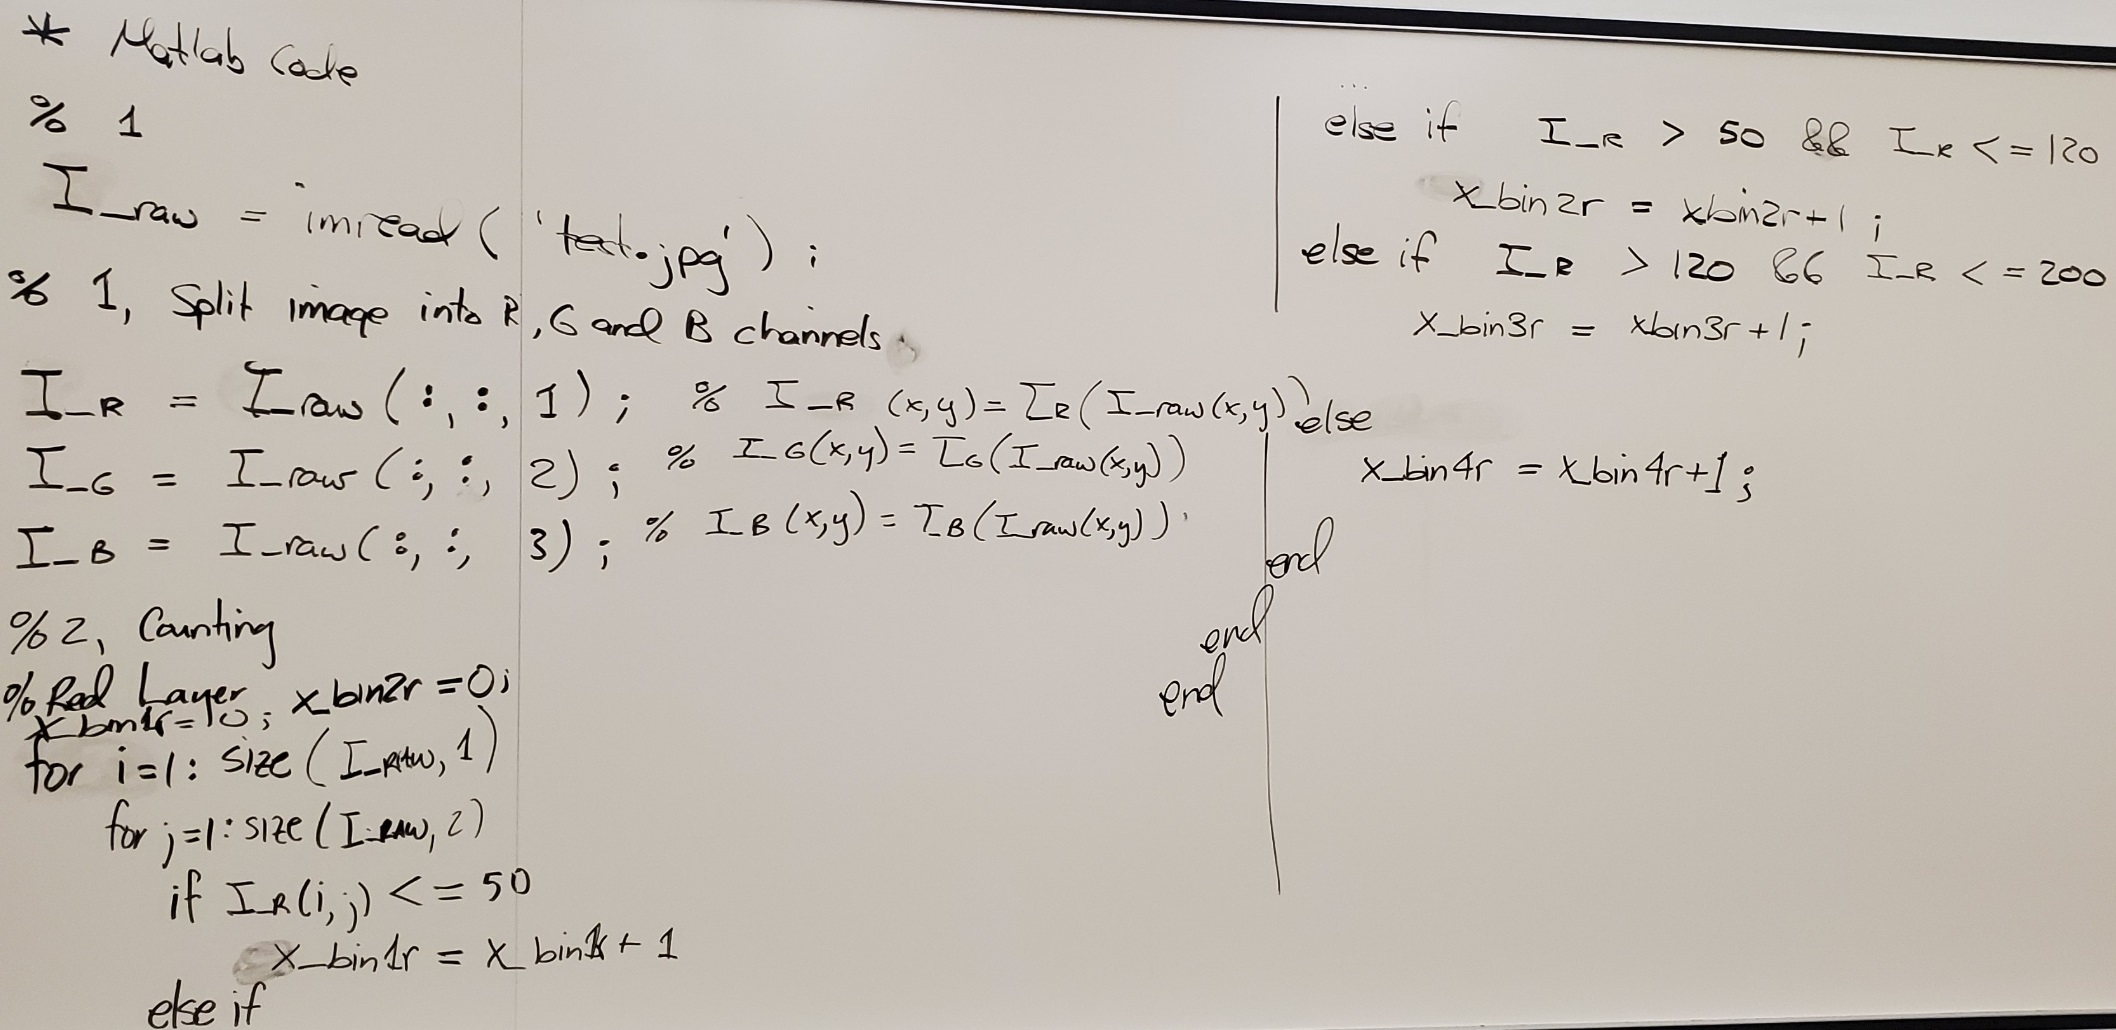 * Matlab Code
% 1
I_raw = imread('test.jpg');
% 1, Split image into R, G and B channels
I_R = I_raw(:,:,1); % I_R(x,y)=I_R(I_raw(x,y))
I_G = I_raw(:,:,2); % I_G(x,y)=I_G(I_raw(x,y))
I_B = I_raw(:,:,3); % I_B(x,y)=I_B(I_raw(x,y))
%2, Counting
%Red Layer, x_bin2r=0;
x_bin1r=0;
for i=1:size(I_RAW,1)
for j=1:size(I_RAW,2)
if I_R(i,j) <= 50
x_bin1r = x_bin1r + 1
else if
...
else if I_R > 50 && I_R <= 120
x_bin2r = xbin2r+1;
else if I_R > 120 && I_R <= 200
x_bin3r = xbin3r+1;
else
x_bin4r = x_bin4r+1;
end
end
end